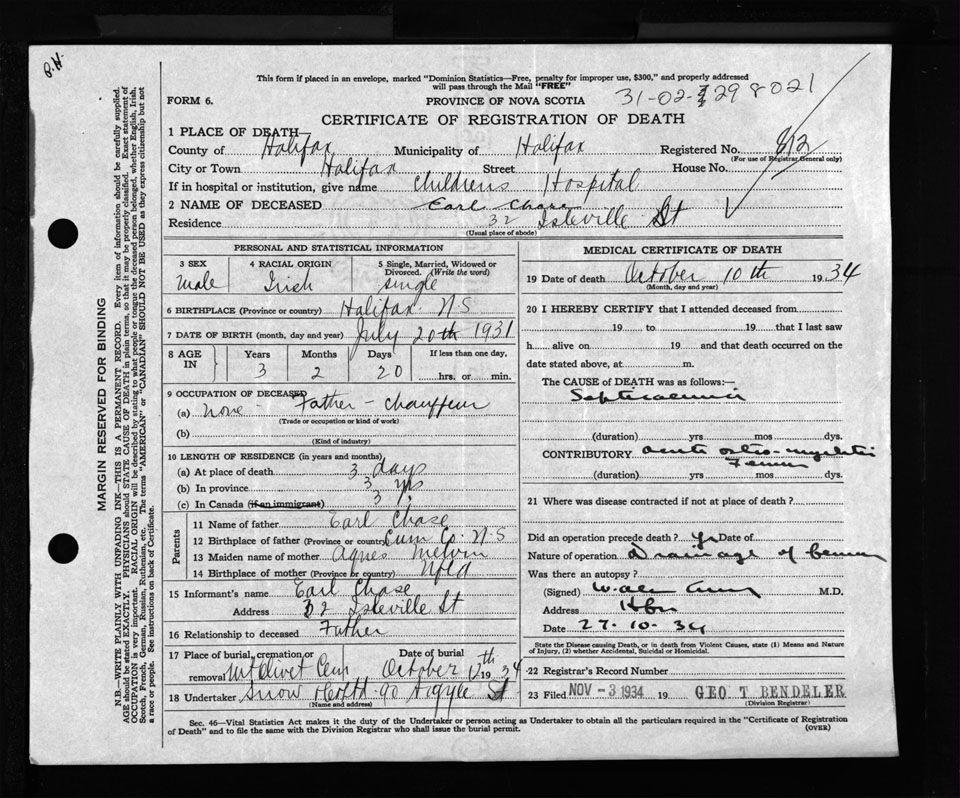 B.H.
This form if placed in an envelope, marked "Dominion Statistics—Free, penalty for improper use, $300," and properly addressed
will pass through the Mail "FREE"
FORM 6.
PROVINCE OF NOVA SCOTIA
31-02-298021
CERTIFICATE OF REGISTRATION OF DEATH
1 PLACE OF DEATH—
County of Halifax Municipality of Halifax Registered No. 812
(For use of Registrar General only)
City or Town Halifax Street House No.
If in hospital or institution, give name Childrens Hospital
2 NAME OF DECEASED Earl Chase
Residence 32 Isleville St
(Usual place of abode)
PERSONAL AND STATISTICAL INFORMATION
3 SEX Male
4 RACIAL ORIGIN Irish
5 Single, Married, Widowed or Divorced. (Write the word) single
6 BIRTHPLACE (Province or country) Halifax N.S
7 DATE OF BIRTH (month, day and year) July 20th 1931
8 AGE IN Years 3 Months 2 Days 20 If less than one day, hrs. or min.
9 OCCUPATION OF DECEASED
(a) None - Father - Chauffeur
(Trade or occupation or kind of work)
(b)
(Kind of industry)
10 LENGTH OF RESIDENCE (in years and months)
(a) At place of death 3 days
(b) In province 3 yrs
(c) In Canada (if an immigrant) 3 "
Parents
11 Name of father Earl Chase
12 Birthplace of father (Province or country) Cum Co. N-S
13 Maiden name of mother Agnes Melvin
14 Birthplace of mother (Province or country) Nfld
15 Informant's name Earl Chase
Address 32 Isleville St
16 Relationship to deceased Father
17 Place of burial, cremation or removal Mt Olivet Cem Date of burial October 12th 1934
18 Undertaker Snow 90 Argyle St
(Name and address)
MEDICAL CERTIFICATE OF DEATH
19 Date of death October 10th 1934
(Month, day and year)
20 I HEREBY CERTIFY that I attended deceased from
19 to 19 that I last saw
h alive on 19 and that death occurred on the
date stated above, at m.
The CAUSE of DEATH was as follows:—
Septicaemia
(duration) yrs mos dys.
CONTRIBUTORY acute osteo-myelitis
Femur
(duration) yrs mos dys.
21 Where was disease contracted if not at place of death?
Did an operation precede death? Yes Date of
Nature of operation Drainage of femur
Was there an autopsy?
(Signed) M.D.
Address Hfx
Date 27-10-34
State the Disease causing Death, or in death from Violent Causes, state (1) Means and Nature
of Injury, (2) whether Accidental, Suicidal or Homicidal.
22 Registrar's Record Number
23 Filed NOV -3 1934 19 GEO T BENDELER
(Division Registrar)
Sec. 46—Vital Statistics Act makes it the duty of the Undertaker or person acting as Undertaker to obtain all the particulars required in the "Certificate of Registration
of Death" and to file the same with the Division Registrar who shall issue the burial permit.
(OVER)
MARGIN RESERVED FOR BINDING
N.B.—WRITE PLAINLY WITH UNFADING INK—THIS IS A PERMANENT RECORD. Every item of information should be carefully supplied.
AGE should be stated EXACTLY. PHYSICIANS should STATE CAUSE OF DEATH in plain terms, so that it may be properly classified. Exact statement of
OCCUPATION is very important. RACIAL ORIGIN will be described by stating to what people or tongue the deceased person belonged, whether English, Irish,
Scotch, French, German, Russian, Ruthenian, etc. The terms "AMERICAN" or "CANADIAN" SHOULD NOT BE USED as they express citizenship but not
a race or people. See instructions on back of Certificate.